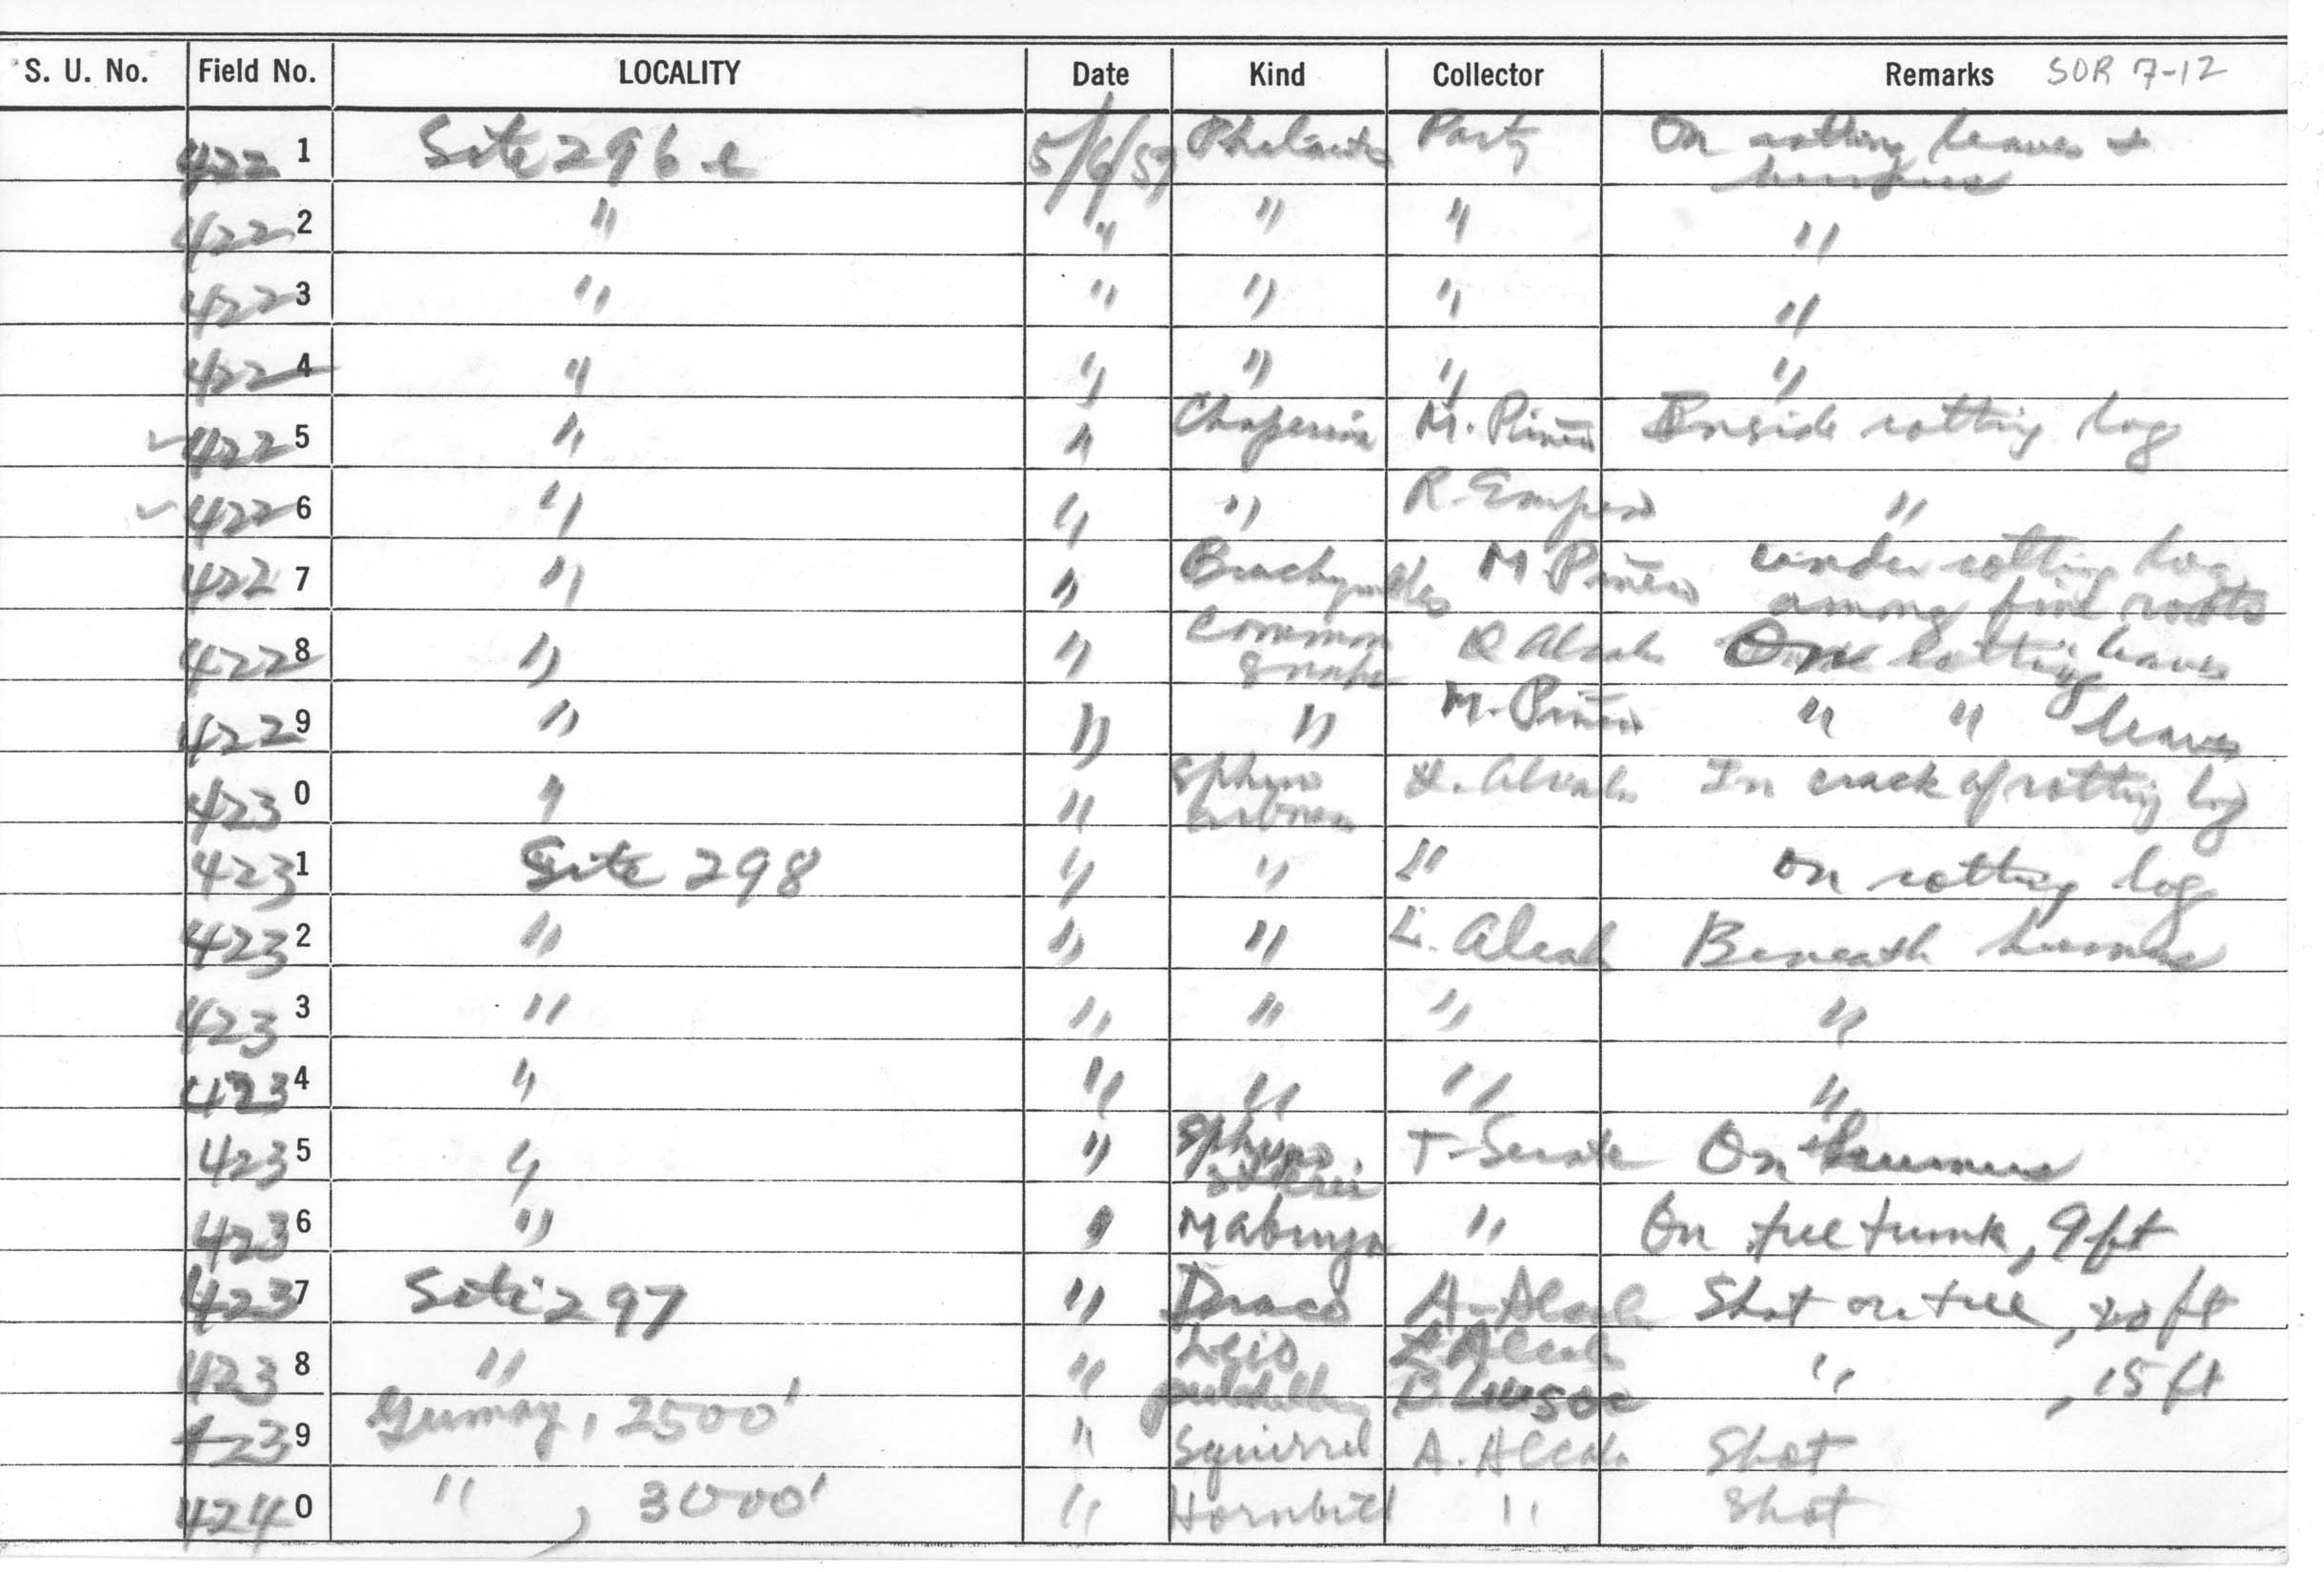 S. U. No. Field No. LOCALITY Date Kind Collector Remarks SOR 7-12
4221 Site 296 e 5/6/57 Party On rotting leaves +
humus
4222 " " " " "
4223 " " " " "
4224 " " " " "
4225 " " Chaperina M. Piñero Inside rotting log
4226 " " " R. Empeso "
4227 " " Brachymeles M. Piñero under rotting log
among fine roots
4228 " " Common snake Alcala On rotting leaves
4229 " " " M. Piñero " " leaves
4230 " " Spheno Alcala In crack of rotting log
4231 Site 298 " " " on rotting log
4232 " " " L. Alcala Beneath humus
4233 " " " " "
4234 " " " " "
4235 " " Spheno T. Serate On humus
4236 " " Mabuya " On tree trunk, 9 ft
4237 Site 297 " Draco A. Alcala Shot on tree, 20 ft
4238 " " Leio L. Alcala " , 15 ft
4239 Gumay, 2500' " Squirrel A. Alcala Shot
4240 " , 3000' " Hornbill " Shot